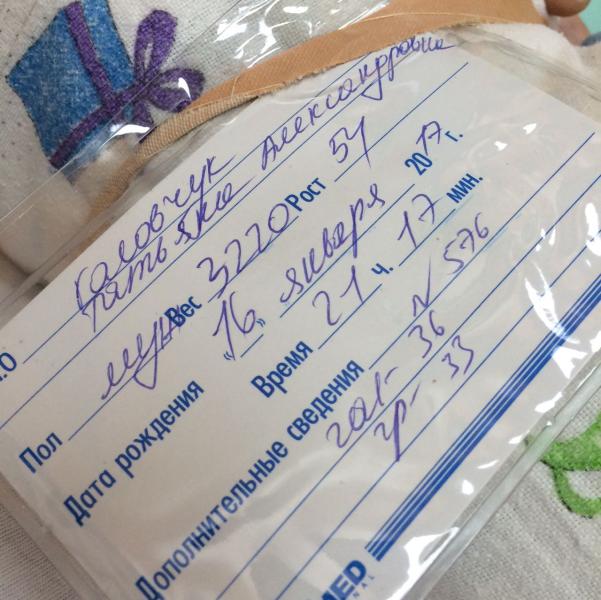 Головчук
.О Татьяна Александровна
Пол муж Вес 3220 Рост 54
Дата рождения "16" января 2017 г.
Время 21 ч. 17 мин.
Дополнительные сведения N 576
гол- 36
гр- 33
MED